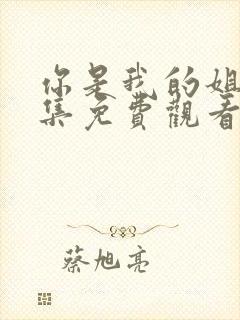 你是我的姐
集免費觀看
蔡旭亮